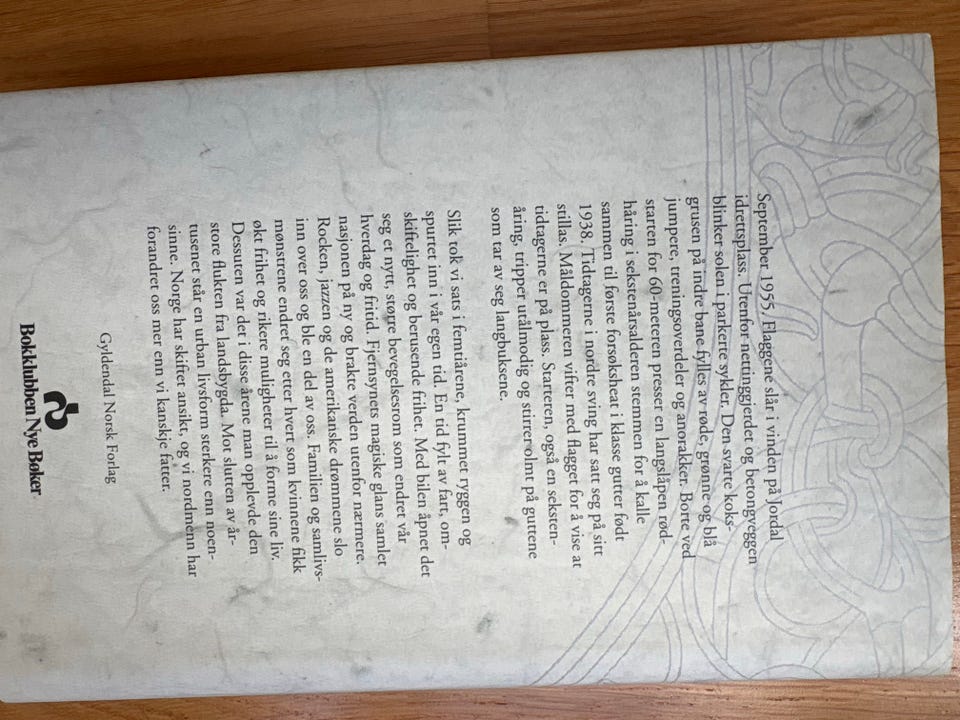 September 1955. Flaggene slår i vinden på Jordal
idrettsplass. Utenfor nettinggjerdet og betongveggen
blinker solen i parkerte sykler. Den svarte koks-
grusen på indre bane fylles av røde, grønne og blå
jumpere, treningsoverdeler og anorakker. Borte ved
starten for 60-meteren presser en langslåpen rød-
håring i sekstenårsalderen stemmen for å kalle
sammen til første forsøksheat i klasse gutter født
1938. Tidtagerne i nordre sving har satt seg på sitt
stillas. Måldommeren vifter med flagget for å vise at
tidtagerne er på plass. Starteren, også en seksten-
åring, tripper utålmodig og stirrer olmt på guttene
som tar av seg langbuksene.
Slik tok vi sats i femtiårene, krummet ryggen og
spurtet inn i vår egen tid. En tid fylt av fart, om-
skiftelighet og berusende frihet. Med bilen åpnet det
seg et nytt, større bevegelsesrom som endret vår
hverdag og fritid. Fjernsynets magiske glans samlet
nasjonen på ny og brakte verden utenfor nærmere.
Rocken, jazzen og de amerikanske drømmene slo
inn over oss og ble en del av oss. Familien og samlivs-
mønstrene endret seg etter hvert som kvinnene fikk
økt frihet og rikere muligheter til å forme sine liv.
Dessuten var det i disse årene man opplevde den
store flukten fra landsbygda. Mot slutten av år-
tusenet står en urban livsform sterkere enn noen-
sinne. Norge har skiftet ansikt, og vi nordmenn har
forandret oss mer enn vi kanskje fatter.
Gyldendal Norsk Forlag
Bokklubben Nye Bøker